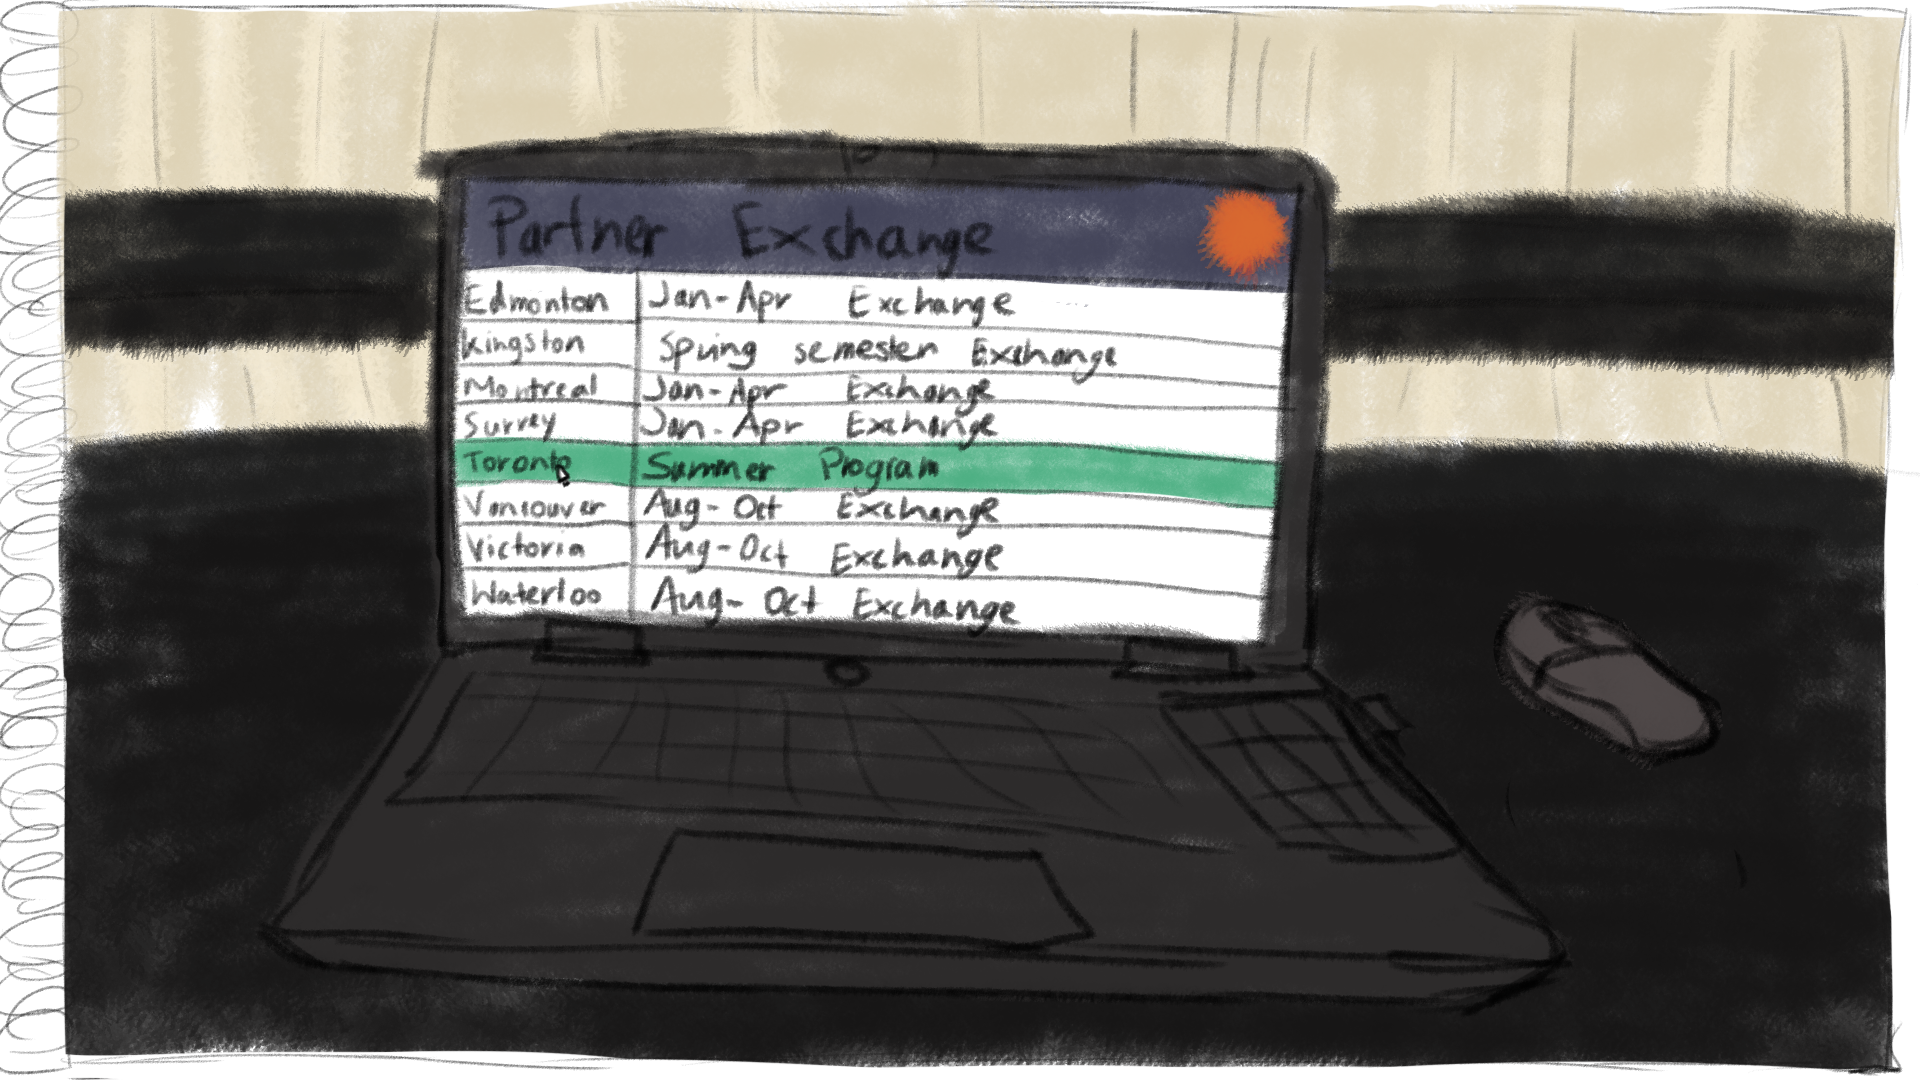 Partner Exchange
Edmonton Jan-Apr Exchange
Kingston Spring semester Exchange
Montreal Jan-Apr Exchange
Surrey Jan-Apr Exchange
Toronto Summer Program
Vancouver Aug-Oct Exchange
Victoria Aug-Oct Exchange
Waterloo Aug-Oct Exchange